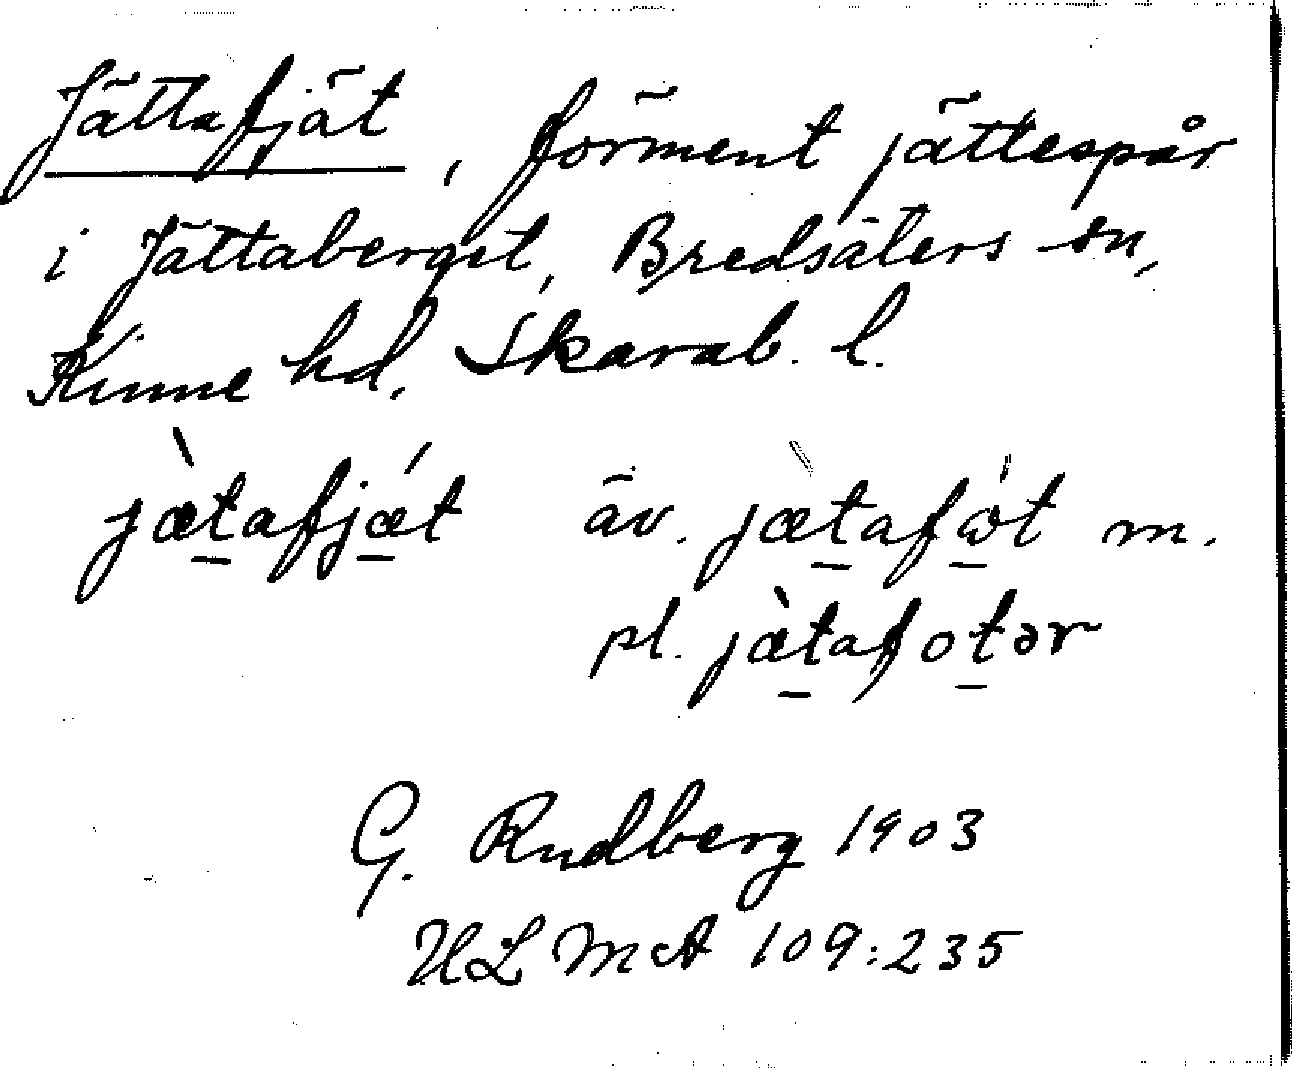 Jättafjät, förment jättespår
i Jättaberget, Bredsäters sn,
Kinne hd, Skarab. l.
jæ̀tafjǽt äv. jæ̀tafώt m.
pl. jæ̀tafotər
G. Rudberg 1903
ULMA 109:235